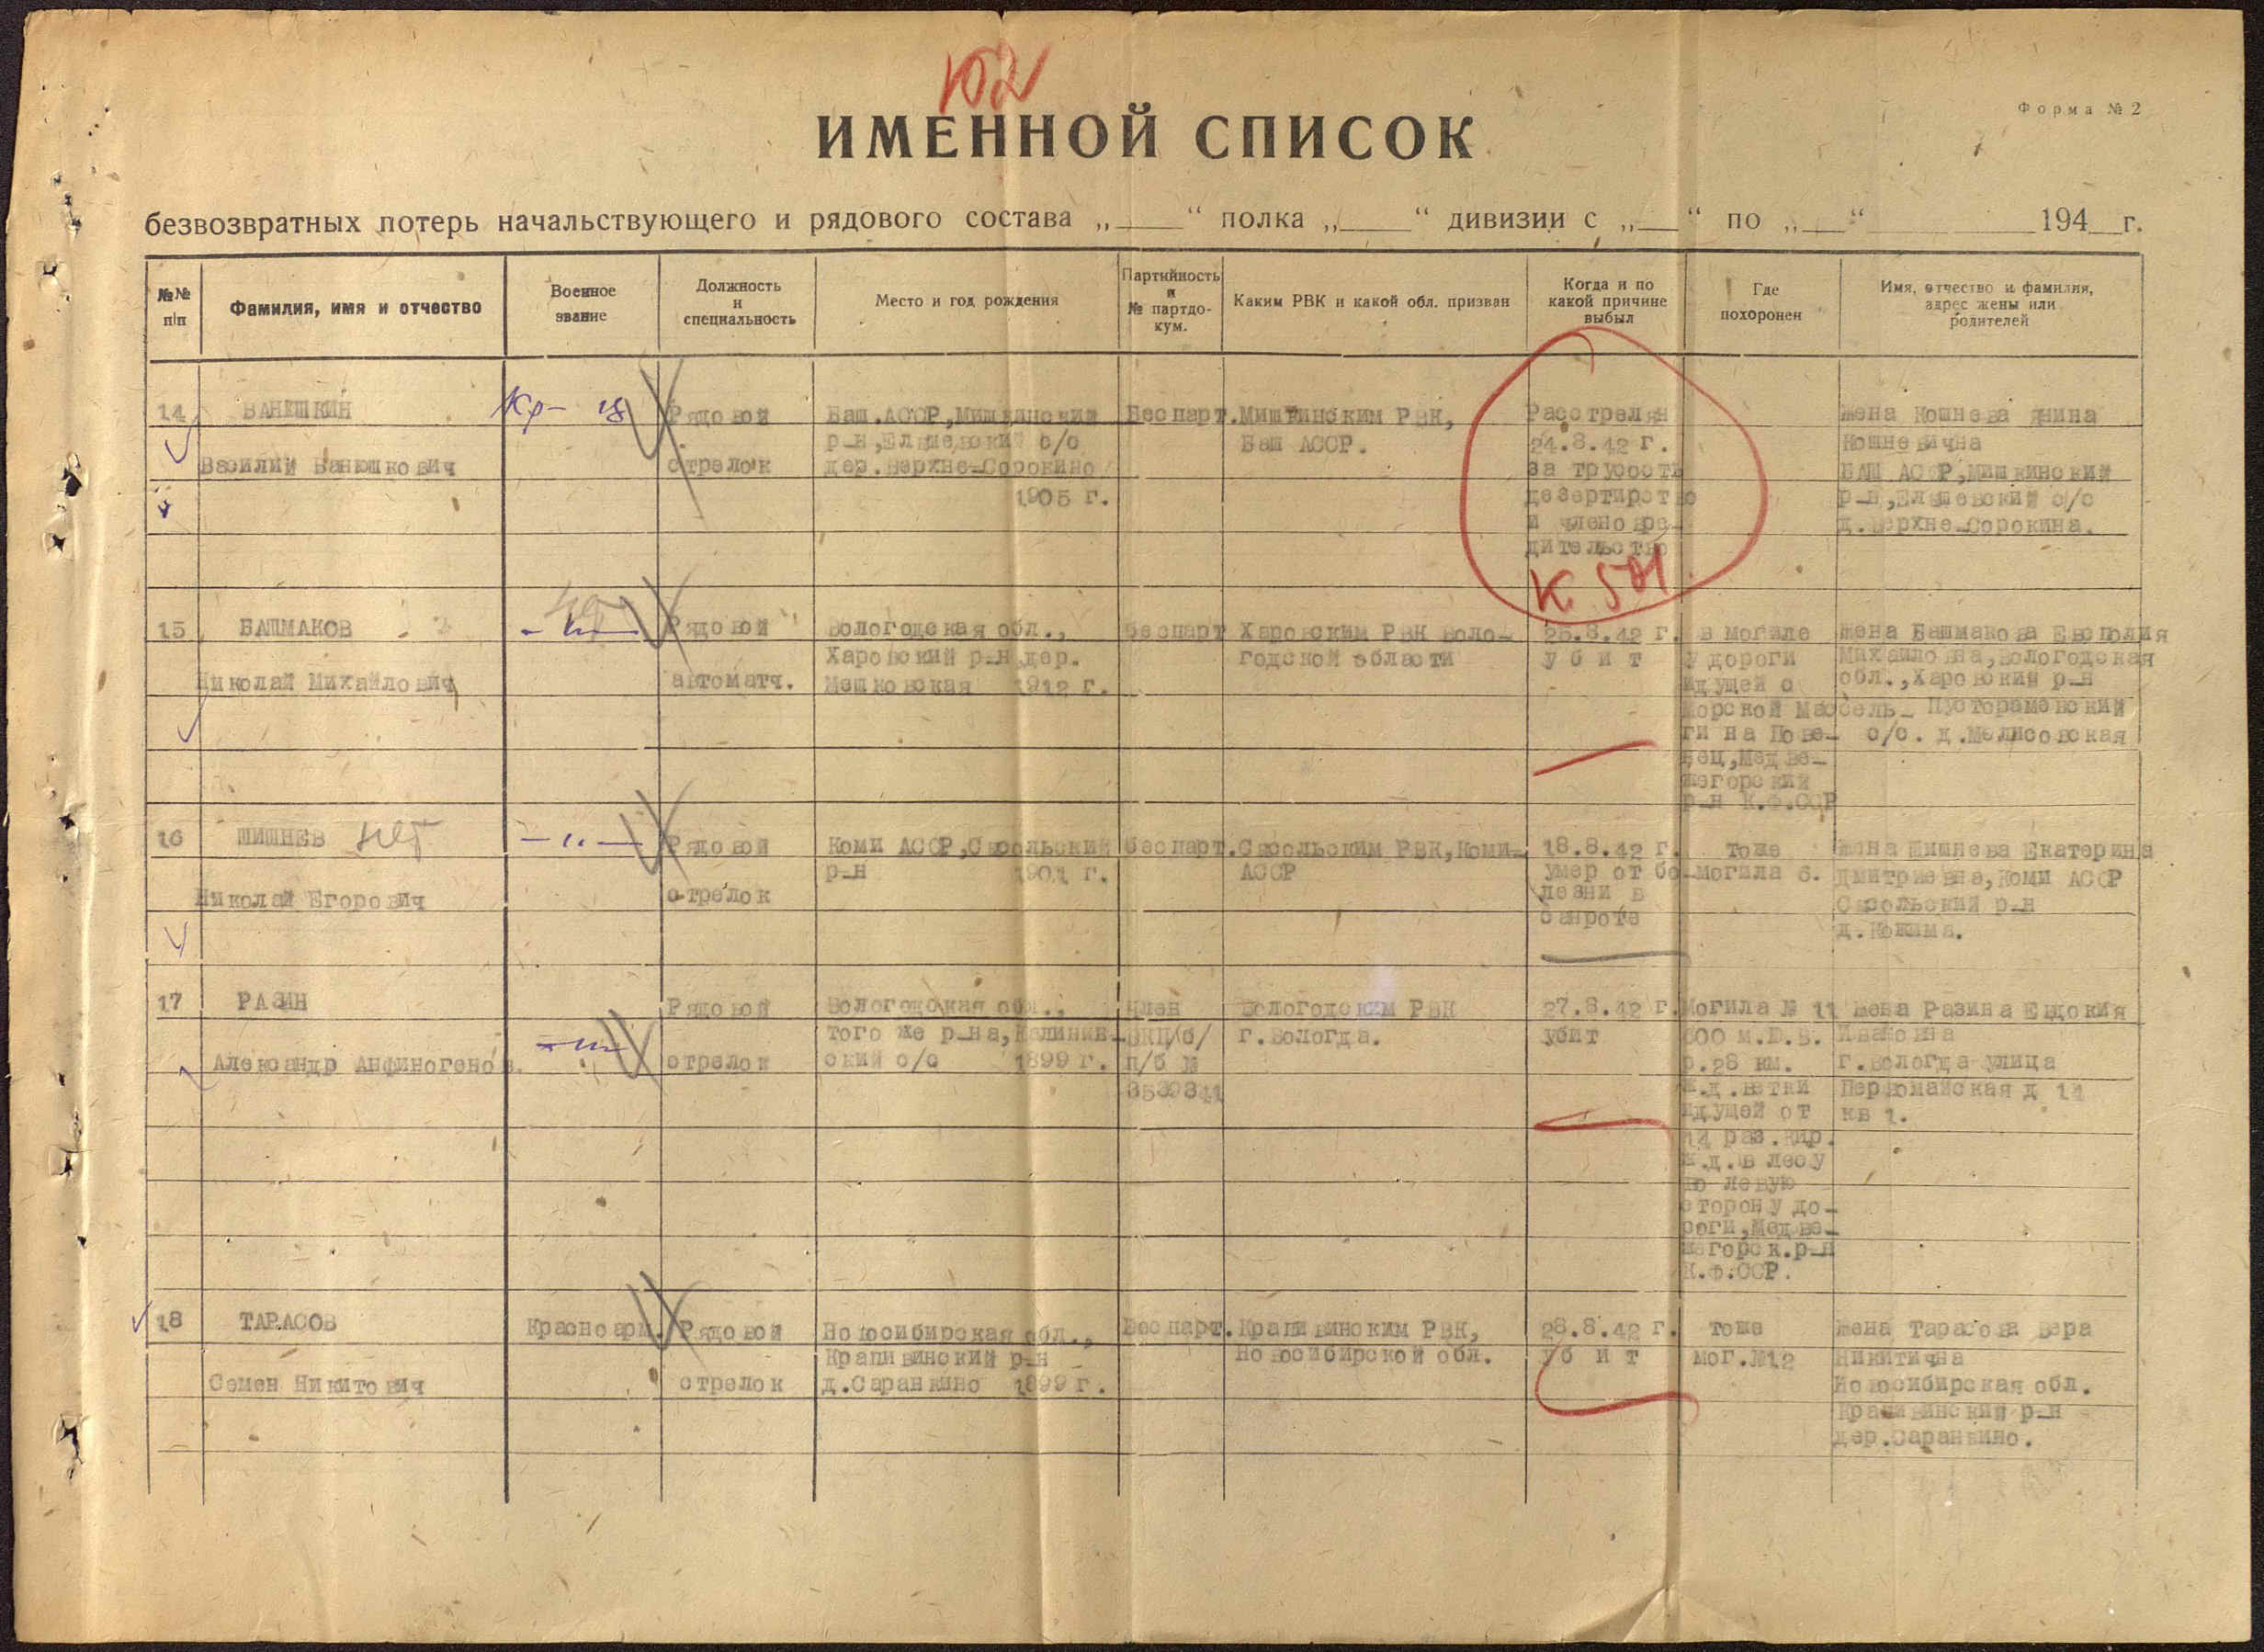 102
Форма № 2
ИМЕННОЙ СПИСОК
безвозвратных потерь начальствующего и рядового состава „____“ полка „____“ дивизии с „__“ по „__“ ________ 194__г.
№№ п/п
Фамилия, имя и отчество
Военное звание
Должность и специальность
Место и год рождения
Партийность и № партдо-кум.
Каким РВК и какой обл. призван
Когда и по какой причине выбыл
Где похоронен
Имя, отчество и фамилия, адрес жены или родителей
14
ВАНЮШКИН
Василий Ванюшкович
Кр-ц
Рядовой
стрелок
Баш.АССР,Мишкинский
р-н, с/с
дер.Верхне-Сорокино
1905 г.
Беспарт.
Мишкинским РВК,
Баш АССР.
Расстрелян
24.8.42 г.
за трусость
дезертирство
и членовре-
дительство
К 501
Жена Кошнева
Кошневична
БАШ АССР,Мишкинский
р-н, с/с
д.Верхне-Сорокина.
15
БАШМАКОВ
Николай Михайлович
-"-
Рядовой
автоматч.
Вологодская обл.,
Харовский р-н,дер.
Мешковская 1912 г.
беспарт
Харовским РВК Воло-
годской области
26.8.42 г.
у б и т
в могиле
у дороги
идущей с
Морской Массель-
ги на Пове-
нец,Медве-
жегорский
р-н К.Ф.ССР
Жена Башмакова
Михайловна,Вологодская
обл.,Харовский р-н
Пустораменский
с/с. д.Мелисовская
16
ШИШНЕВ нет
Николай Егорович
-"-
Рядовой
стрелок
Коми АССР,Сысольский
р-н 1901 г.
беспарт.
Сысольским РВК,Коми-
АССР
18.8.42 г.
умер от бо-
лезни в
санроте
тоже
могила 6.
Жена Шишнева Екатерина
Дмитриевна,Коми АССР
Сысольский р-н
д.Кожима.
17
РАЗИН
Александр Анфиногенов.
-"-
Рядовой
стрелок
Вологодская обл.,
того же р-на,Калинин-
ский с/с 1899 г.
член
ВКП/б/
п/б №
Вологодским РВК
г.Вологда.
27.8.42 г.
убит
Могила № 11
600 м.Ю.В.
р.28 км.
ж.д.ветки
идущей от
14 раз.Кир.
ж.д.в лесу
по левую
сторону до-
роги,Медве-
жегорск.р-н
К.Ф.ССР.
Жена Разина Евдокия
Ивановна
г.Вологда улица
Первомайская д 14
кв 1.
18
ТАРАСОВ
Семен Никитович
Красноарм.
Рядовой
стрелок
Новосибирская обл.,
Крапивинский р-н
д.Саранкино 1899 г.
Беспарт.
Крапивинским РВК,
Новосибирской обл.
28.8.42 г.
у б и т
тоже
мог.№12
Жена Тарасова Вера
Никитична
Новосибирская обл.
Крапивинский р-н
дер.Саранкино.